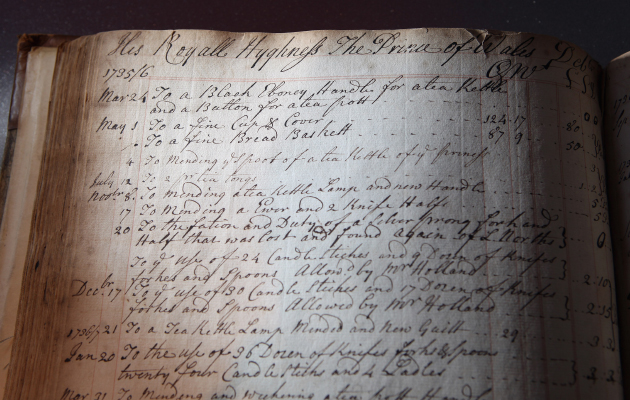 His Royall Hyghness The Prince of Wales Debr
1735/6 Ows
Mar 24 To a Black Eboney Handle for a tea Kettle
and a Button for a tea pott
May 1 To a fine Cup & Cover 124-17 80
To a fine Bread Baskett 87 9 50
4 To Mending ye Spoot of a tea Kettle of ye Prinses
July 12 To 2 pr tea tongs
Novbr 8 To mending a tea Kettle Lamp and new Handle
17 To Mending a Ewer and 2 Knife Hafts
20 To the fation and Duty of a Silver prong fork and
Haft that was Lost and found Again of 2 Worths 0
To ye use of 24 Candle Stickes and 9 Dozen of Knifes
forkes and Spoons Allowd by Mr Holland 2:10
Decbr 17 To ye use of 30 Candle Stickes and 17 Dozen of Knifes
forkes and Spoons Allowed by Mr Holland 2:15
1736/7 21 To a Tea Kettle Lamp Minded and New Guilt 29
Jan 20 To the use of 36 Dozen of Knifes forks & spoons
twenty four Candle Stiks and 4 Ladles 3.3
Mar 31 To Mending and a tea pott